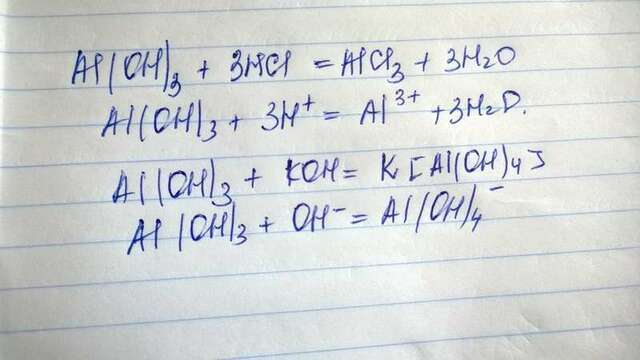 Al(OH)3 + 3HCl = AlCl3 + 3H2O
Al(OH)3 + 3H+ = Al3+ + 3H2O.
Al(OH)3 + KOH = K[Al(OH)4]
Al(OH)3 + OH- = Al(OH)4-